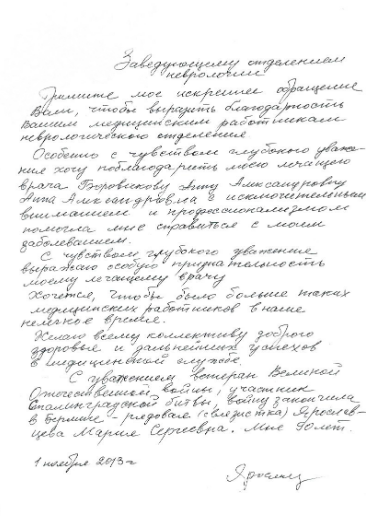 Заведующему отделением
неврологии
Примите мое искреннее обращение
Вам, чтобы выразить благодарность
Вашим медицинским работникам
неврологического отделения
Особенно с чувством глубокого уваже-
ния хочу поблагодарить мою лечащего
врача Боровикову Анну Александровну
Анна Александровна с исключительным
вниманием и профессионализмом
помогла мне справиться с моим
заболеванием.
С чувством глубокого уважения
выражаю особую признательность
моему лечащему врачу
Хочется, чтобы было больше таких
медицинских работников в наше
нелегкое время.
Желаю всему коллективу доброго
здоровья и дальнейших успехов
в медицинской службе
С уважением ветеран Великой
Отечественной войны, участник
Сталинградской битвы, войну закончила
в Берлине - рядовая (связистка) Ярослав-
цева Мария Сергеевна. Мне 90 лет.
1 ноября 2013 г